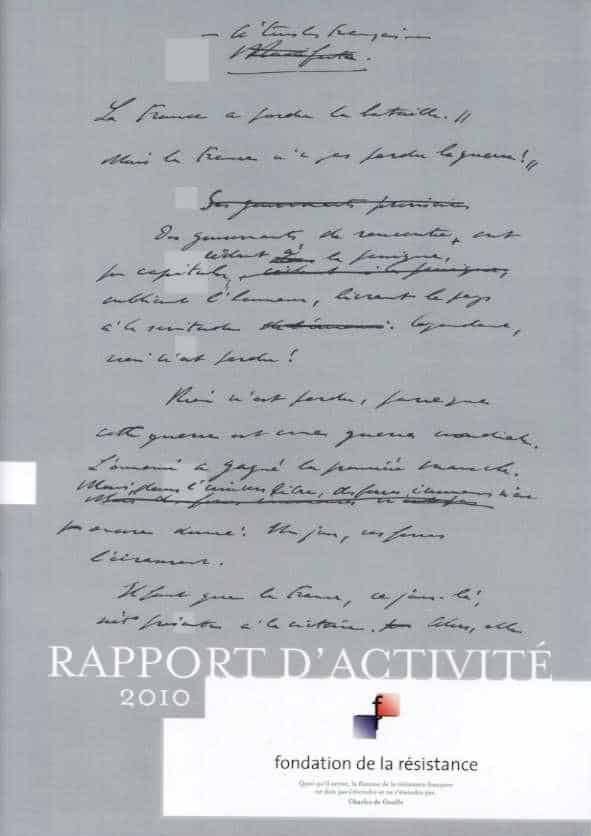 – A tous les Français –
La France a perdu la bataille. //
Mais la France n'a pas perdu la guerre! //
Des gouvernants de rencontre, ont
pu capituler, cédant à la panique,
oubliant l'honneur, livrant le pays
à la servitude. Cependant,
rien n'est perdu!
Rien n'est perdu, parce que
cette guerre est une guerre mondiale.
L'ennemi a gagné la première manche.
Mais, dans l'univers libre, des forces immenses n'ont
pas encore donné. Un jour, ces forces
l'écraseront.
Il faut que la France, ce jour-là,
soit présente à la victoire. Alors, elle
RAPPORT D'ACTIVITÉ
2010
f
fondation de la résistance
Quoi qu'il arrive, la flamme de la résistance française
ne doit pas s'éteindre et ne s'éteindra pas.
Charles de Gaulle